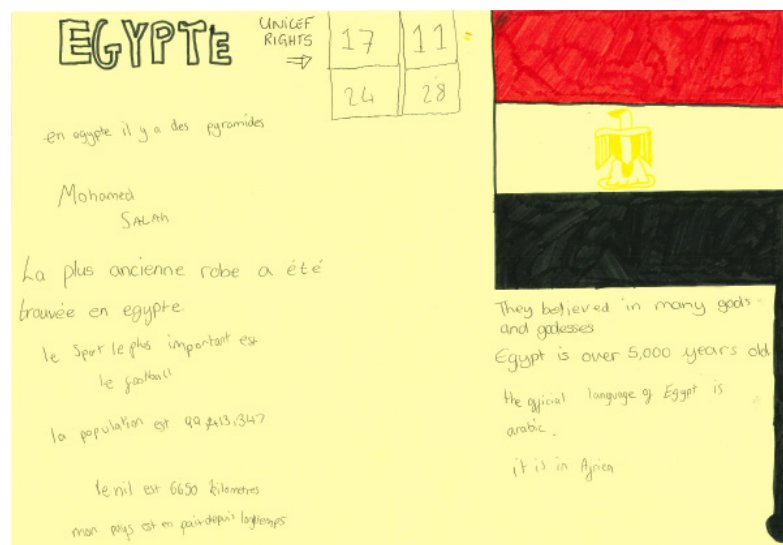 EGYPTE
UNICEF
RIGHTS
⇒
17 11 =
24 28
en egypte il y a des pyramides
Mohamed
SALAH
La plus ancienne robe a été
trouvée en egypte
le Sport le plus important est
le football
la population est 99,413,347
le nil est 6650 kilometres
mon pays est en paix depuis longtemps
They believed in many gods
and godesses
Egypt is over 5,000 years old
the official language of Egypt is
arabic.
it is in